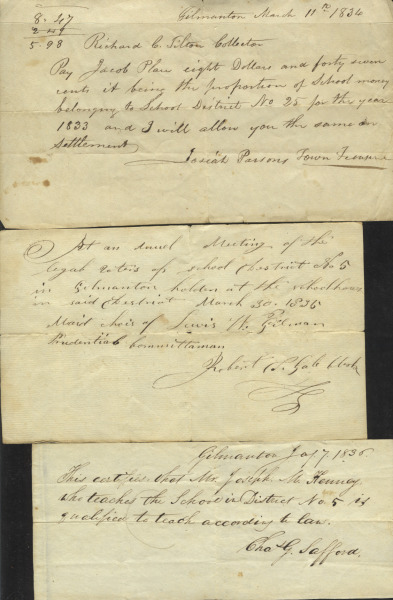 8.47
2.49
5.98
Gilmanton March 11th 1834
Richard C. Tilton Collector
Pay Jacob Plan eight Dollars and forty seven
cents it being the proportion of School money
belonging to School District No 25 for the year
1833 and I will allow you the same on
Settlement
Josiah Parsons Town Treasurer
At an anuel Meeting of the
legal voters of school District No 5
in Gilmanton holden at the schoolhouse
in said District March 30. 1835
Maid chois of Lewis W. Gilman
Prudential Committaman
Robert Gale Clerk
Gilmanton Jay 7 1836
This certifies that Mr. Joseph M. Kenney
who teaches the School in District No. 5 is
qualified to teach according to law.
Chas G. Safford.